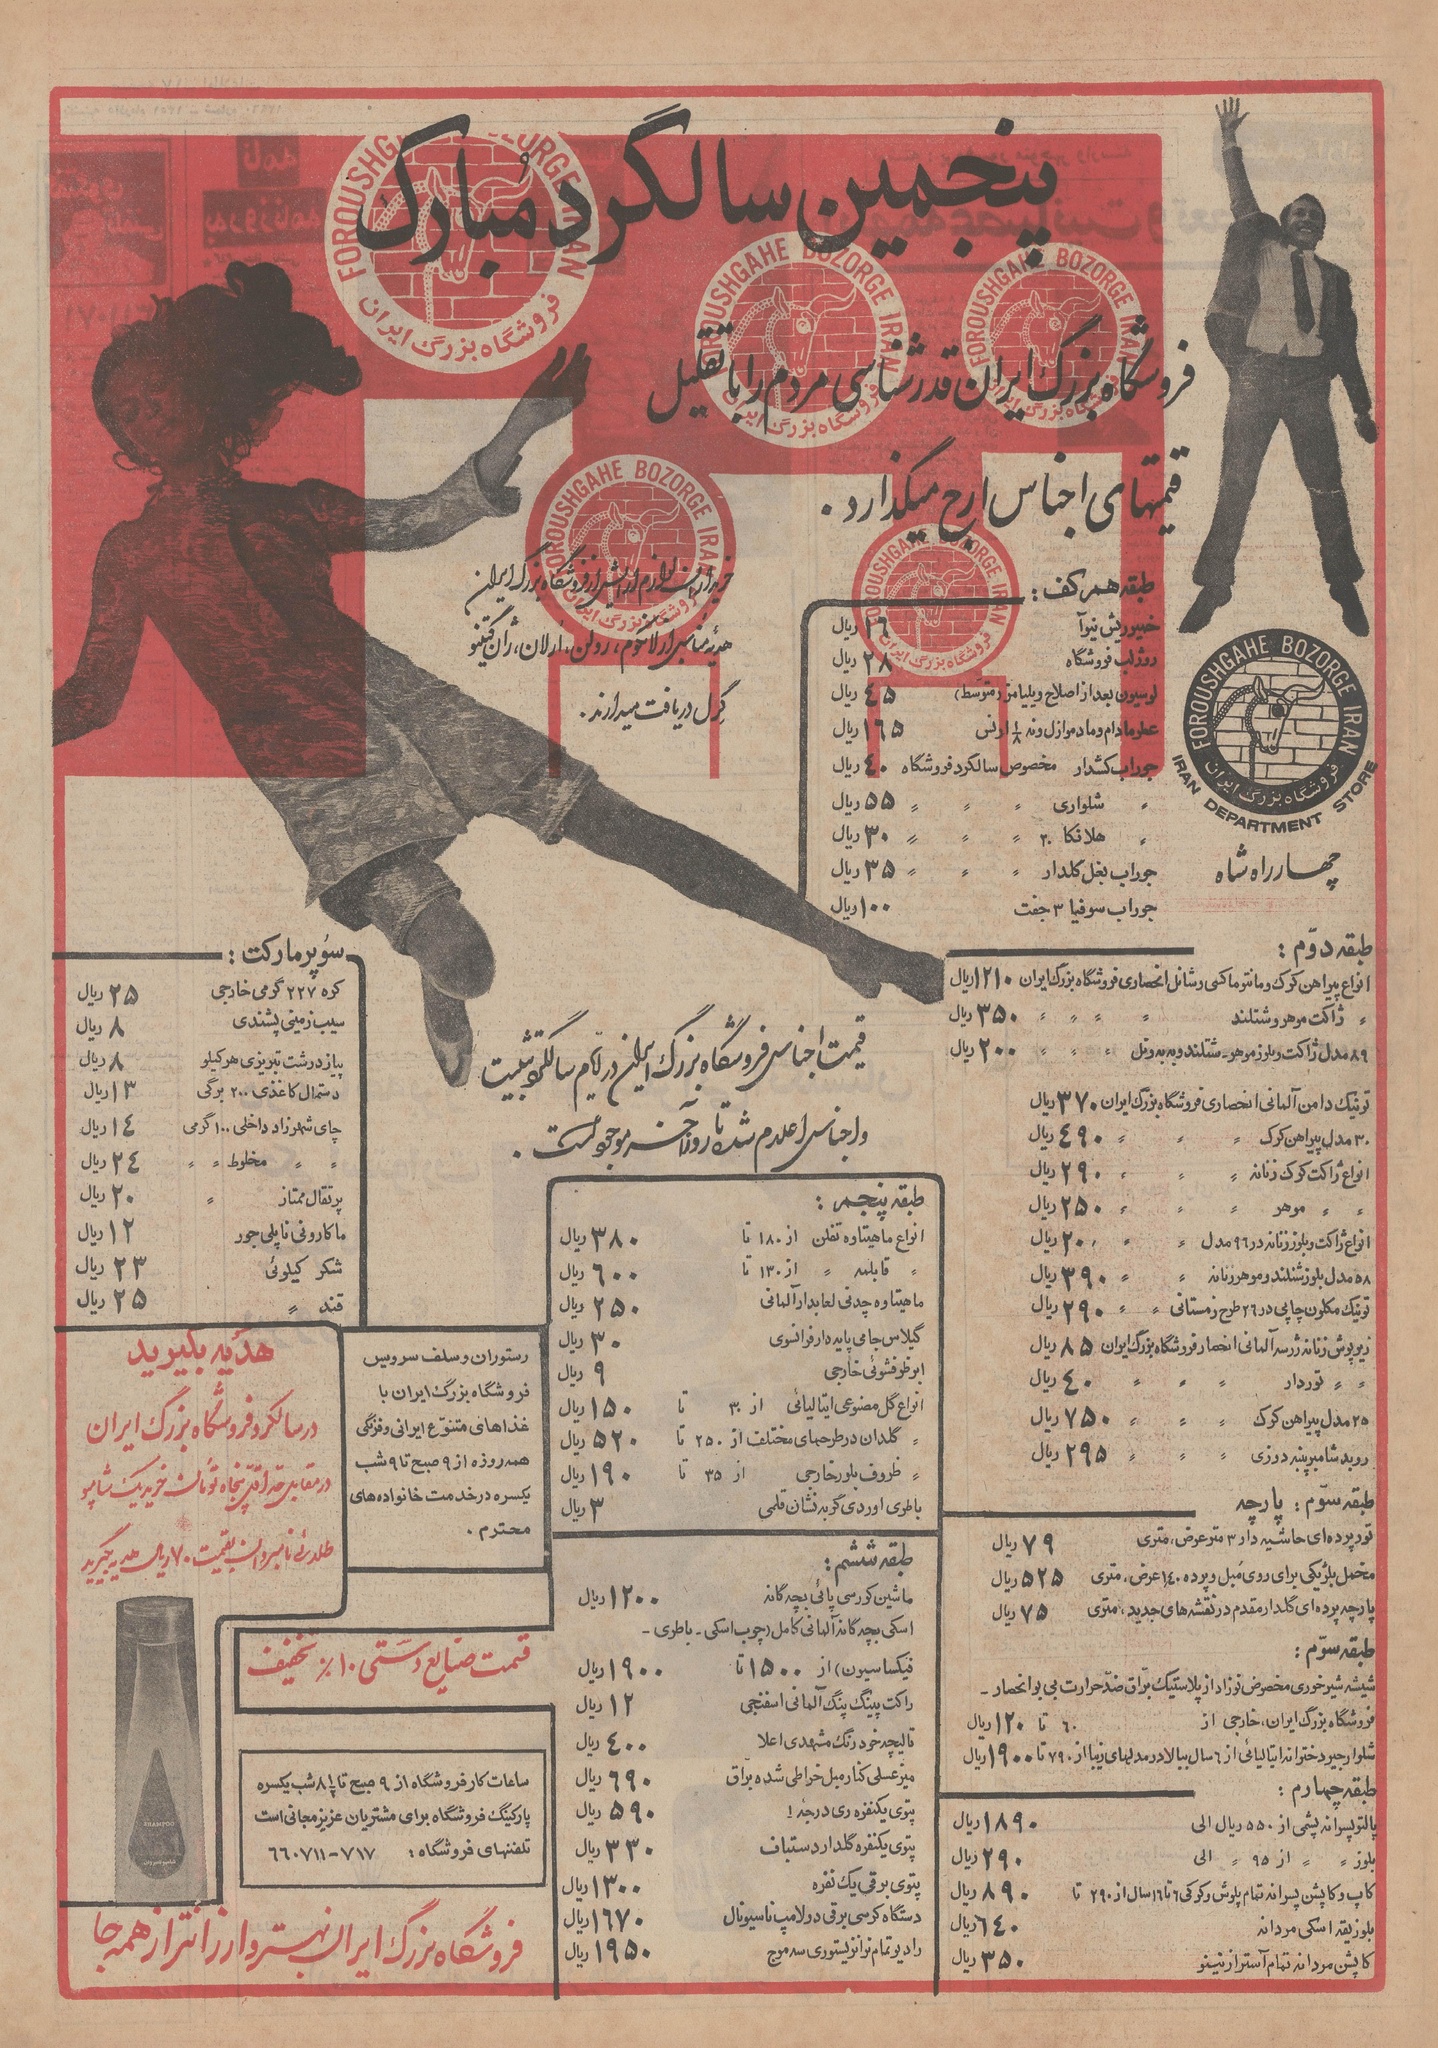 پنجمین سالگرد مبارک
FOROUSHGAHE BOZORGE IRAN
فروشگاه بزرگ ایران
فروشگاه بزرگ ایران قدرشناسی مردم را با تقلیل
قیمتهای اجناس ارج میگذارد .
خریداران لوازم آرایش از فروشگاه بزرگ ایران
هدیهٔ مناسبی از لانکوم ، رولن ، اُرلان ، ژران گتینو
گرل دریافت میدارند .
FOROUSHGAHE BOZORGE IRAN
فروشگاه بزرگ ایران
IRAN DEPARTMENT STORE
چهارراه شاه
طبقه همکف :
خمیرریش نیوآ ۱۶ ریال
روژلب فروشگاه ۲۸ ریال
لوسیون بعد از اصلاح ویلیامز (متوسط) ۴۵ ریال
عطر مادام و مادموازل ونه ۱/۸ اونس ۱۶۵ ریال
جوراب کشدار مخصوص سالگرد فروشگاه ۴۰ ریال
〃 شلواری 〃 〃 〃 ۵۵ ریال
〃 هلانکا ۲۰ 〃 〃 〃 ۳۰ ریال
جوراب بغل گلدار 〃 〃 〃 ۳۵ ریال
جوراب سوفیا ۳ جفت ۱۰۰ ریال
طبقه دوّم :
انواع پیراهن کرک و مانتو ماکسی و شانل انحصاری فروشگاه بزرگ ایران ۱۲۱۰ ریال
〃 ژاکت موهر و شتلند 〃 〃 〃 〃 ۳۵۰ ریال
۸۹ مدل ژاکت و بلوز موهر - شتلند و به به و تل 〃 〃 〃 ۲۰۰ ریال
تونیک دامن آلمانی انحصاری فروشگاه بزرگ ایران ۳۷۰ ریال
۳۰ مدل پیراهن کرک 〃 〃 〃 ۴۹۰ ریال
انواع ژاکت کرک زنانه 〃 〃 〃 ۲۹۰ ریال
〃 〃 موهر 〃 〃 〃 ۲۵۰ ریال
انواع ژاکت و بلوز زنانه در ۹۶ مدل 〃 〃 ۲۰۰ ریال
۵۸ مدل بلوز شتلند و موهر زنانه 〃 〃 ۳۹۰ ریال
تونیک مکلون چاپی در ۲۶ طرح زمستانی 〃 〃 ۲۹۰ ریال
زیرپوش زنانه ژرسه آلمانی انحصار فروشگاه بزرگ ایران ۸۵ ریال
〃 〃 توردار 〃 〃 〃 ۴۰ ریال
۲۵ مدل پیراهن کرک 〃 〃 〃 ۷۵۰ ریال
روبدشامبر پنبه دوزی 〃 〃 〃 ۲۹۵ ریال
طبقه سوّم : پارچه
تور پرده ای حاشیه دار ۳ متر عرض ، متری ۷۹ ریال
مخمل بلژیکی برای روی مُبل و پرده ۱۴۰ عرض ، متری ۵۲۵ ریال
پارچه پرده ای گلدار مقدم در نقشه های جدید ، متری ۷۵ ریال
طبقه سوّم :
شیشه شیرخوری مخصوص نوزاد از پلاستیک برّاق ضدّ حرارت بی بو انحصار -
فروشگاه بزرگ ایران ، خارجی از ۶۰ تا ۱۲۰ ریال
شلوار جیر دخترانه ایتالیائی از ۶ سال ببالا در مدلهای زیبا از ۷۹۰ تا ۱۹۰۰ ریال
طبقه چهارم :
پالتو پسرانه پشمی از ۵۵۰ ریال الی ۱۸۹۰ ریال
بلوز 〃 〃 از ۹۵ 〃 الی ۲۹۰ ریال
کاپ و کاپشن پسرانه تمام پلوش و کرکی ۶ تا ۱۶ سال از ۲۹۰ تا ۸۹۰ ریال
بلوز یقه اسکی مردانه ۶۴۰ ریال
کاپشن مردانه تمام آستر از نینو ۳۵۰ ریال
قیمت اجناس فروشگاه بزرگ ایران در ایّام سالگرد تثبیت
و اجناس اعلام شده تا روز آخر موجود است .
سوُپر مارکت :
کره ۲۲۷ گرمی خارجی ۲۵ ریال
سیب زمینی پشندی ۸ ریال
پیاز درشت تبریزی هر کیلو ۸ ریال
دستمال کاغذی ۲۰۰ برگی ۱۳ ریال
چای شهرزاد داخلی ۱۰۰ گرمی ۱۴ ریال
〃 〃 مخلوط 〃 〃 ۲۴ ریال
پرتقال ممتاز 〃 ۲۰ ریال
ماکارونی ناپلی جور ۱۲ ریال
شکر کیلوئی ۲۳ ریال
قند 〃 ۲۵ ریال
طبقه پنجم :
انواع ماهیتاوه تفلن از ۱۸۰ تا ۳۸۰ ریال
〃 قابلمه 〃 از ۱۳۰ تا ۶۰۰ ریال
ماهیتاوه چدنی لعابدار آلمانی ۲۵۰ ریال
گیلاس جامی پایه دار فرانسوی ۳۰ ریال
ابر ظرفشوئی خارجی ۹ ریال
انواع گل مصنوعی ایتالیائی از ۳۰ تا ۱۵۰ ریال
〃 گلدان در طرحهای مختلف از ۲۵۰ تا ۵۲۰ ریال
〃 ظروف بلور خارجی از ۳۵ تا ۱۹۰ ریال
باطری اوردی گربه نشان قلمی ۳ ریال
طبقه ششم :
ماشین کورسی پائی بچه گانه ۱۲۰۰ ریال
اسکی بچه گانه آلمانی کامل (چوب اسکی - باطری -
فیکساسیون) از ۱۵۰۰ تا ۱۹۰۰ ریال
راکت پینگ پنگ آلمانی اسفنجی ۱۲ ریال
قالیچه خود رنگ مشهدی اعلا ۴۰۰ ریال
میز عسلی کنار مبل خراطی شده برّاق ۶۹۰ ریال
پتوی یکنفره ری درجه ۱ ۵۹۰ ریال
پتوی یکنفره گلدار دستباف ۳۳۰ ریال
پتوی برقی یک نفره ۱۳۰۰ ریال
دستگاه کرسی برقی دو لامپ ناسیونال ۱۶۷۰ ریال
رادیو تمام ترانزیستوری سه موج ۱۹۵۰ ریال
هدیه بگیرید
در سالگرد فروشگاه بزرگ ایران
در مقابل حداقل پنجاه تومان خرید یک شامپو
طلائی نامبروان بقیمت ۷۰ ریال هدیه بگیرید
رستوران و سلف سرویس
فروشگاه بزرگ ایران با
غذاهای متنوّع ایرانی و فرنگی
همه روزه از ۹ صبح تا ۹ شب
یکسره در خدمت خانواده های
محترم .
قیمت صنایع دستی ۱۰٪ تخفیف
SHAMPOO
ساعات کار فروشگاه از ۹ صبح تا ۸½ شب یکسره
پارکینگ فروشگاه برای مشتریان عزیز مجانی است
تلفنهای فروشگاه : ۷۱۷-۶۶۰۷۱۱
فروشگاه بزرگ ایران بهتر و ارزانتر از همه جا